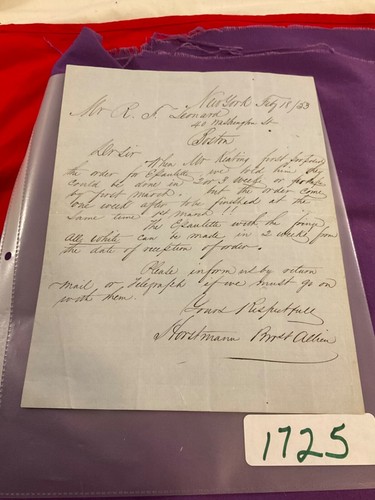 New York Feby 18/53
Mr R. F. Leonard
40 Washington St
Boston
Dr Sir
When Mr Keating first
the order for Epaulette we told him they
could be done in 2 or 3 weeks or perhaps
by first march. but the order come
one week after to be finished at the
same time 1st march!!
The Epaulette with the fringe
all white can be made in 2 weeks from
the date of reception of order.
Please inform us by return
mail or Telegraph if we must go on
with them.
Yours Respectfull
Horstmann Bros & Allien
1725